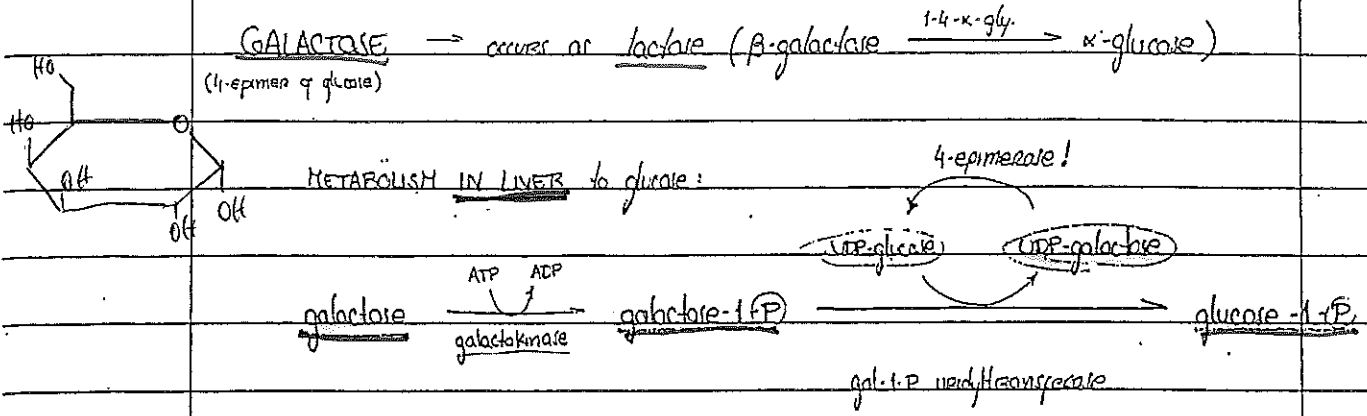 GALACTOSE → occurs as lactose (β-galactose 1-4-α-gly. → α-glucose)
(4-epimer of glucose)
HO
HO
OH
O
OH
OH
METABOLISM IN LIVER to glucose:
4-epimerase!
UDP-glucose
UDP-galactose
ATP ADP
galactose → galactose-1-P → glucose-1-P
galactokinase
gal-1-P uridyltransferase